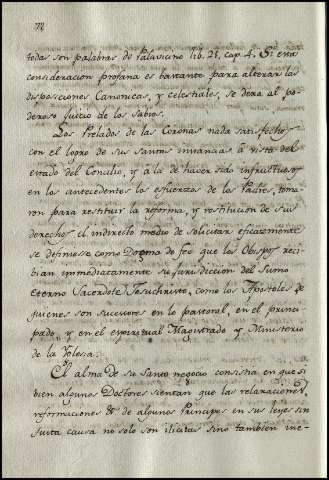 todas son palabras de Palavicino lib. 21, cap. 4. Si esta
consideracion profana es bastante para alterar las
disposiciones Canonicas, y celestiales, se dexa al po-
deroso juicio de los Sabios.
Los Prelados de las Coronas nada satisfechos
con el logro de sus santas instancias à vista del
estado del Concilio, y à la de haver sido infructuosos
en lo antecedente los esfuerzos de los Padres, toma-
ron para restituir la reforma, y restitucion de sus
derechos el indirecto medio de solicitar eficazmente
se definiese como Dogma de Feè que los Obispos reci-
bian inmediatamente su jurisdiccion del Sumo
Eterno Sacerdote Jesuchristo, como los Apostoles de
quienes son sucesores en lo pastoral, en el princi-
pado, y en el espiritual Magistrado y Ministerio
de la Yglesia.
El alma de su Santo negocio consistia en que si
bien algunos Doctores sientan que las relaxaciones,
reformaciones &c de algunos Principes en sus leyes sin
justa causa no solo son ilicitas sino tambien ine-